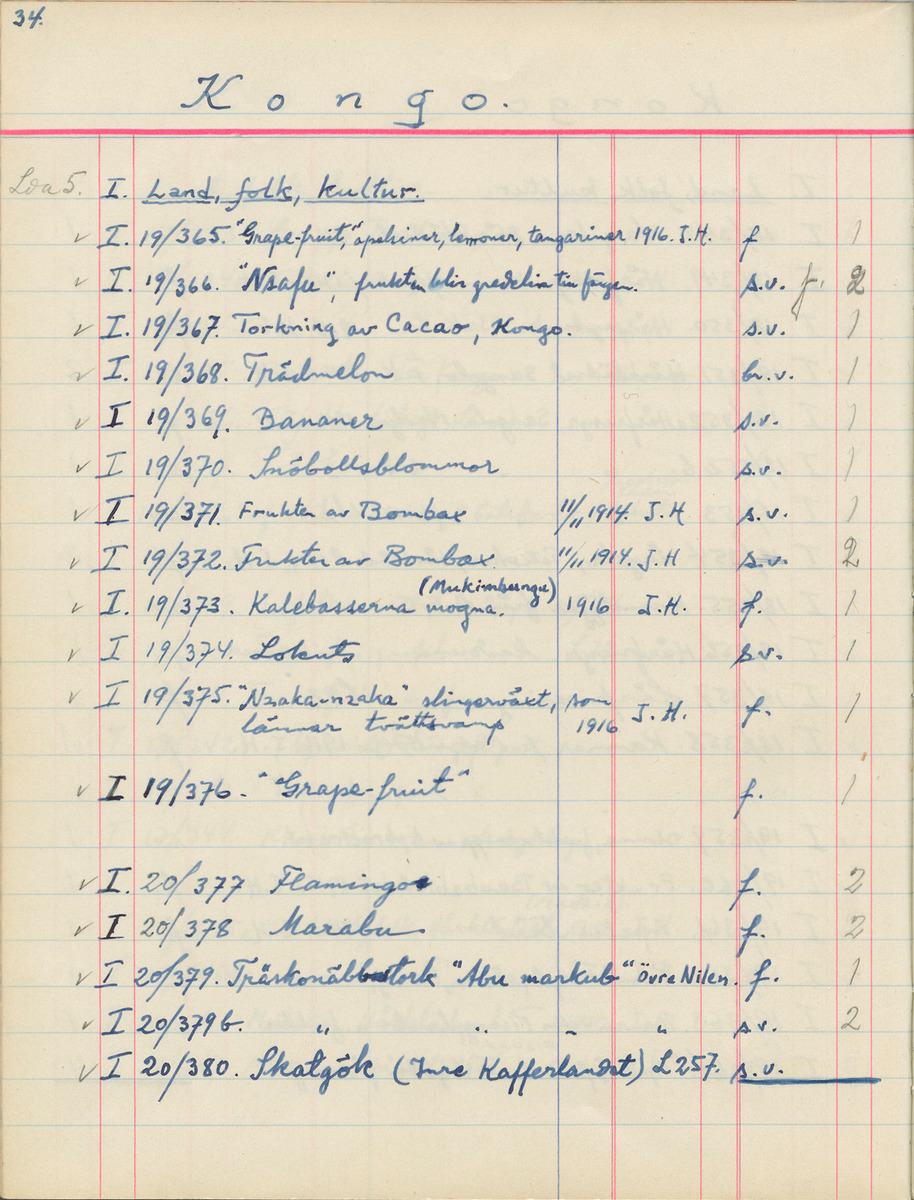 34.
Kongo.
Låda 5. I. Land, folk, kultur.
✓ I. 19/365. "Grape-fruit," apelsiner, lemoner, tangariner 1916. J.H. f 1
✓ I. 19/366. "Nsafu", frukten blir gredelin till färgen. s.v. f. 2
✓ I. 19/367. Torkning av Cacao, Kongo. s.v. 1
✓ I. 19/368. Trädmelon br.v. 1
✓ I 19/369. Bananer s.v. 1
✓ I 19/370. Snöbollsblommor s.v. 1
✓ I 19/371. Frukter av Bombax 11/11 1914. J.H s.v. 1
✓ I 19/372. Frukter av Bombax 11/11 1914. J.H s.v. 2
(Mukimbungu)
✓ I 19/373. Kalebasserna mogna. 1916 J.H. f. 1
✓ I 19/374. Lokuts s.v. 1
✓ I 19/375. "Nzaka-nzaka" slingerväxt, som J.H. f. 1
lämnar tvättsvamp 1916
✓ I 19/376. "Grape-fruit" f. 1
✓ I. 20/377 Flamingo f. 2
✓ I 20/378 Marabu f. 2
✓ I 20/379. Träskonäbbstork "Abu markub" Övre Nilen. f. 1
✓ I 20/379b. " " " " s.v. 2
✓ I 20/380. Skatgök (Inre Kafferlandet) L257. s.v.